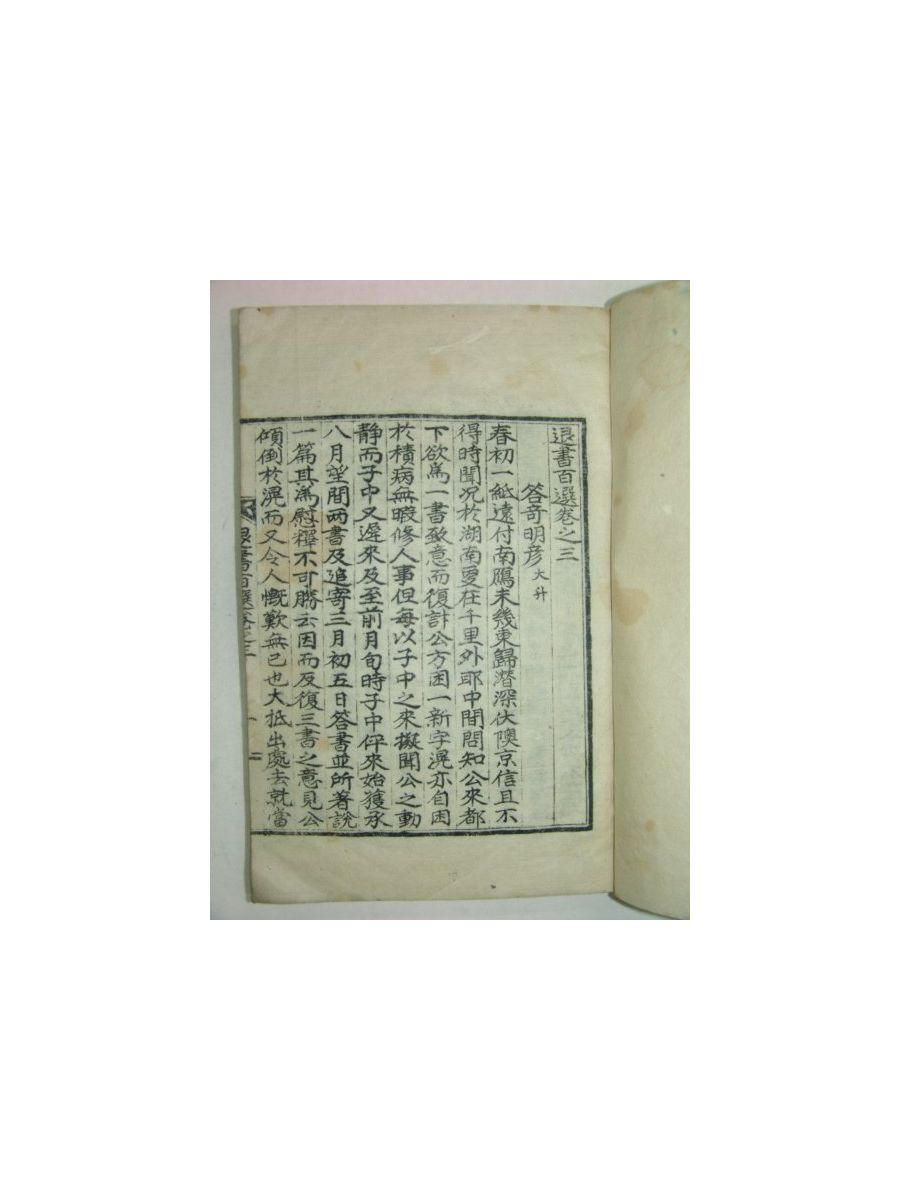 退書百選卷之三
答奇明彦 大升
春初一紙遠付南鴈未幾東歸潛深伏隩京信且不
得時聞况於湖南愛在千里外耶中間問知公來都
下欲爲一書致意而復計公方困一新字滉亦自困
於積病無暇修人事但每以子中之來擬聞公之動
静而子中又遲來及至前月旬時子中伻來始獲承
八月望間两書及追寄三月初五日答書並所著說
一篇其爲慰釋不可勝云因而反復三書之意見公
傾倒於滉而又令人慨歎無已也大抵出處去就當
退書百選卷之三 一